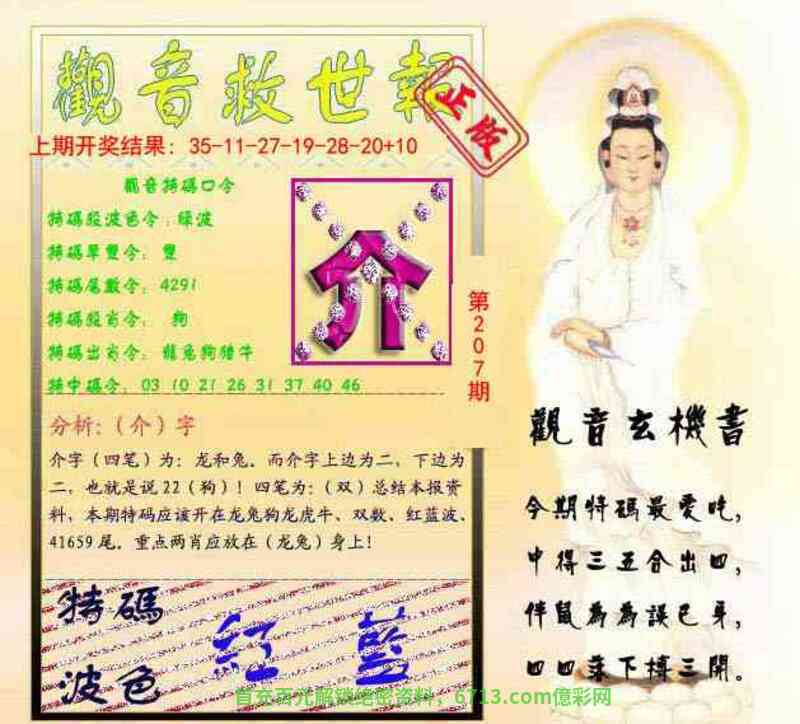 觀音救世報
正版
上期开奖结果：35-11-27-19-28-20+10
觀音特碼口令
特碼殺波色令：綠波
特碼單雙令：雙
特碼尾數令：4291
特碼殺肖令：狗
特碼出肖令：龍兔狗猪牛
特中碼令：03 10 21 26 31 37 40 46
介
第207期
分析：（介）字
介字（四笔）为：龙和兔。而介字上边为二，下边为
二，也就是说22（狗）！四笔为：（双）总结本报资
料，本期特码应该开在龙兔狗龙虎牛、双数、红蓝波、
41659尾。重点两肖应放在（龙兔）身上！
特碼
波色
紅 藍
觀音玄機書
今期特碼最愛吃，
中得三五合出四，
伴鼠為為誤已身，
四四落下搏三開。
首充百元解锁绝密资料，6713.com億彩网